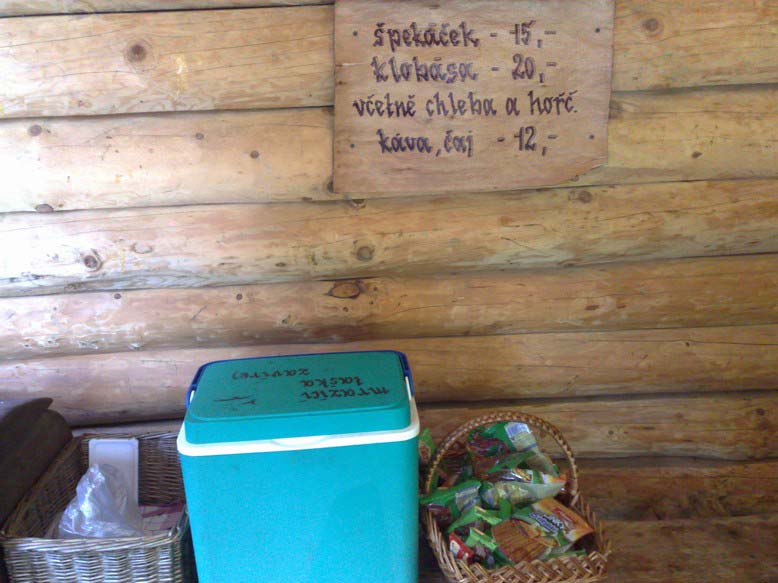 špekáček - 15,-
klobása - 20,-
včetně chleba a hořč.
káva, čaj - 12,-
mrazící
taška
zavírej